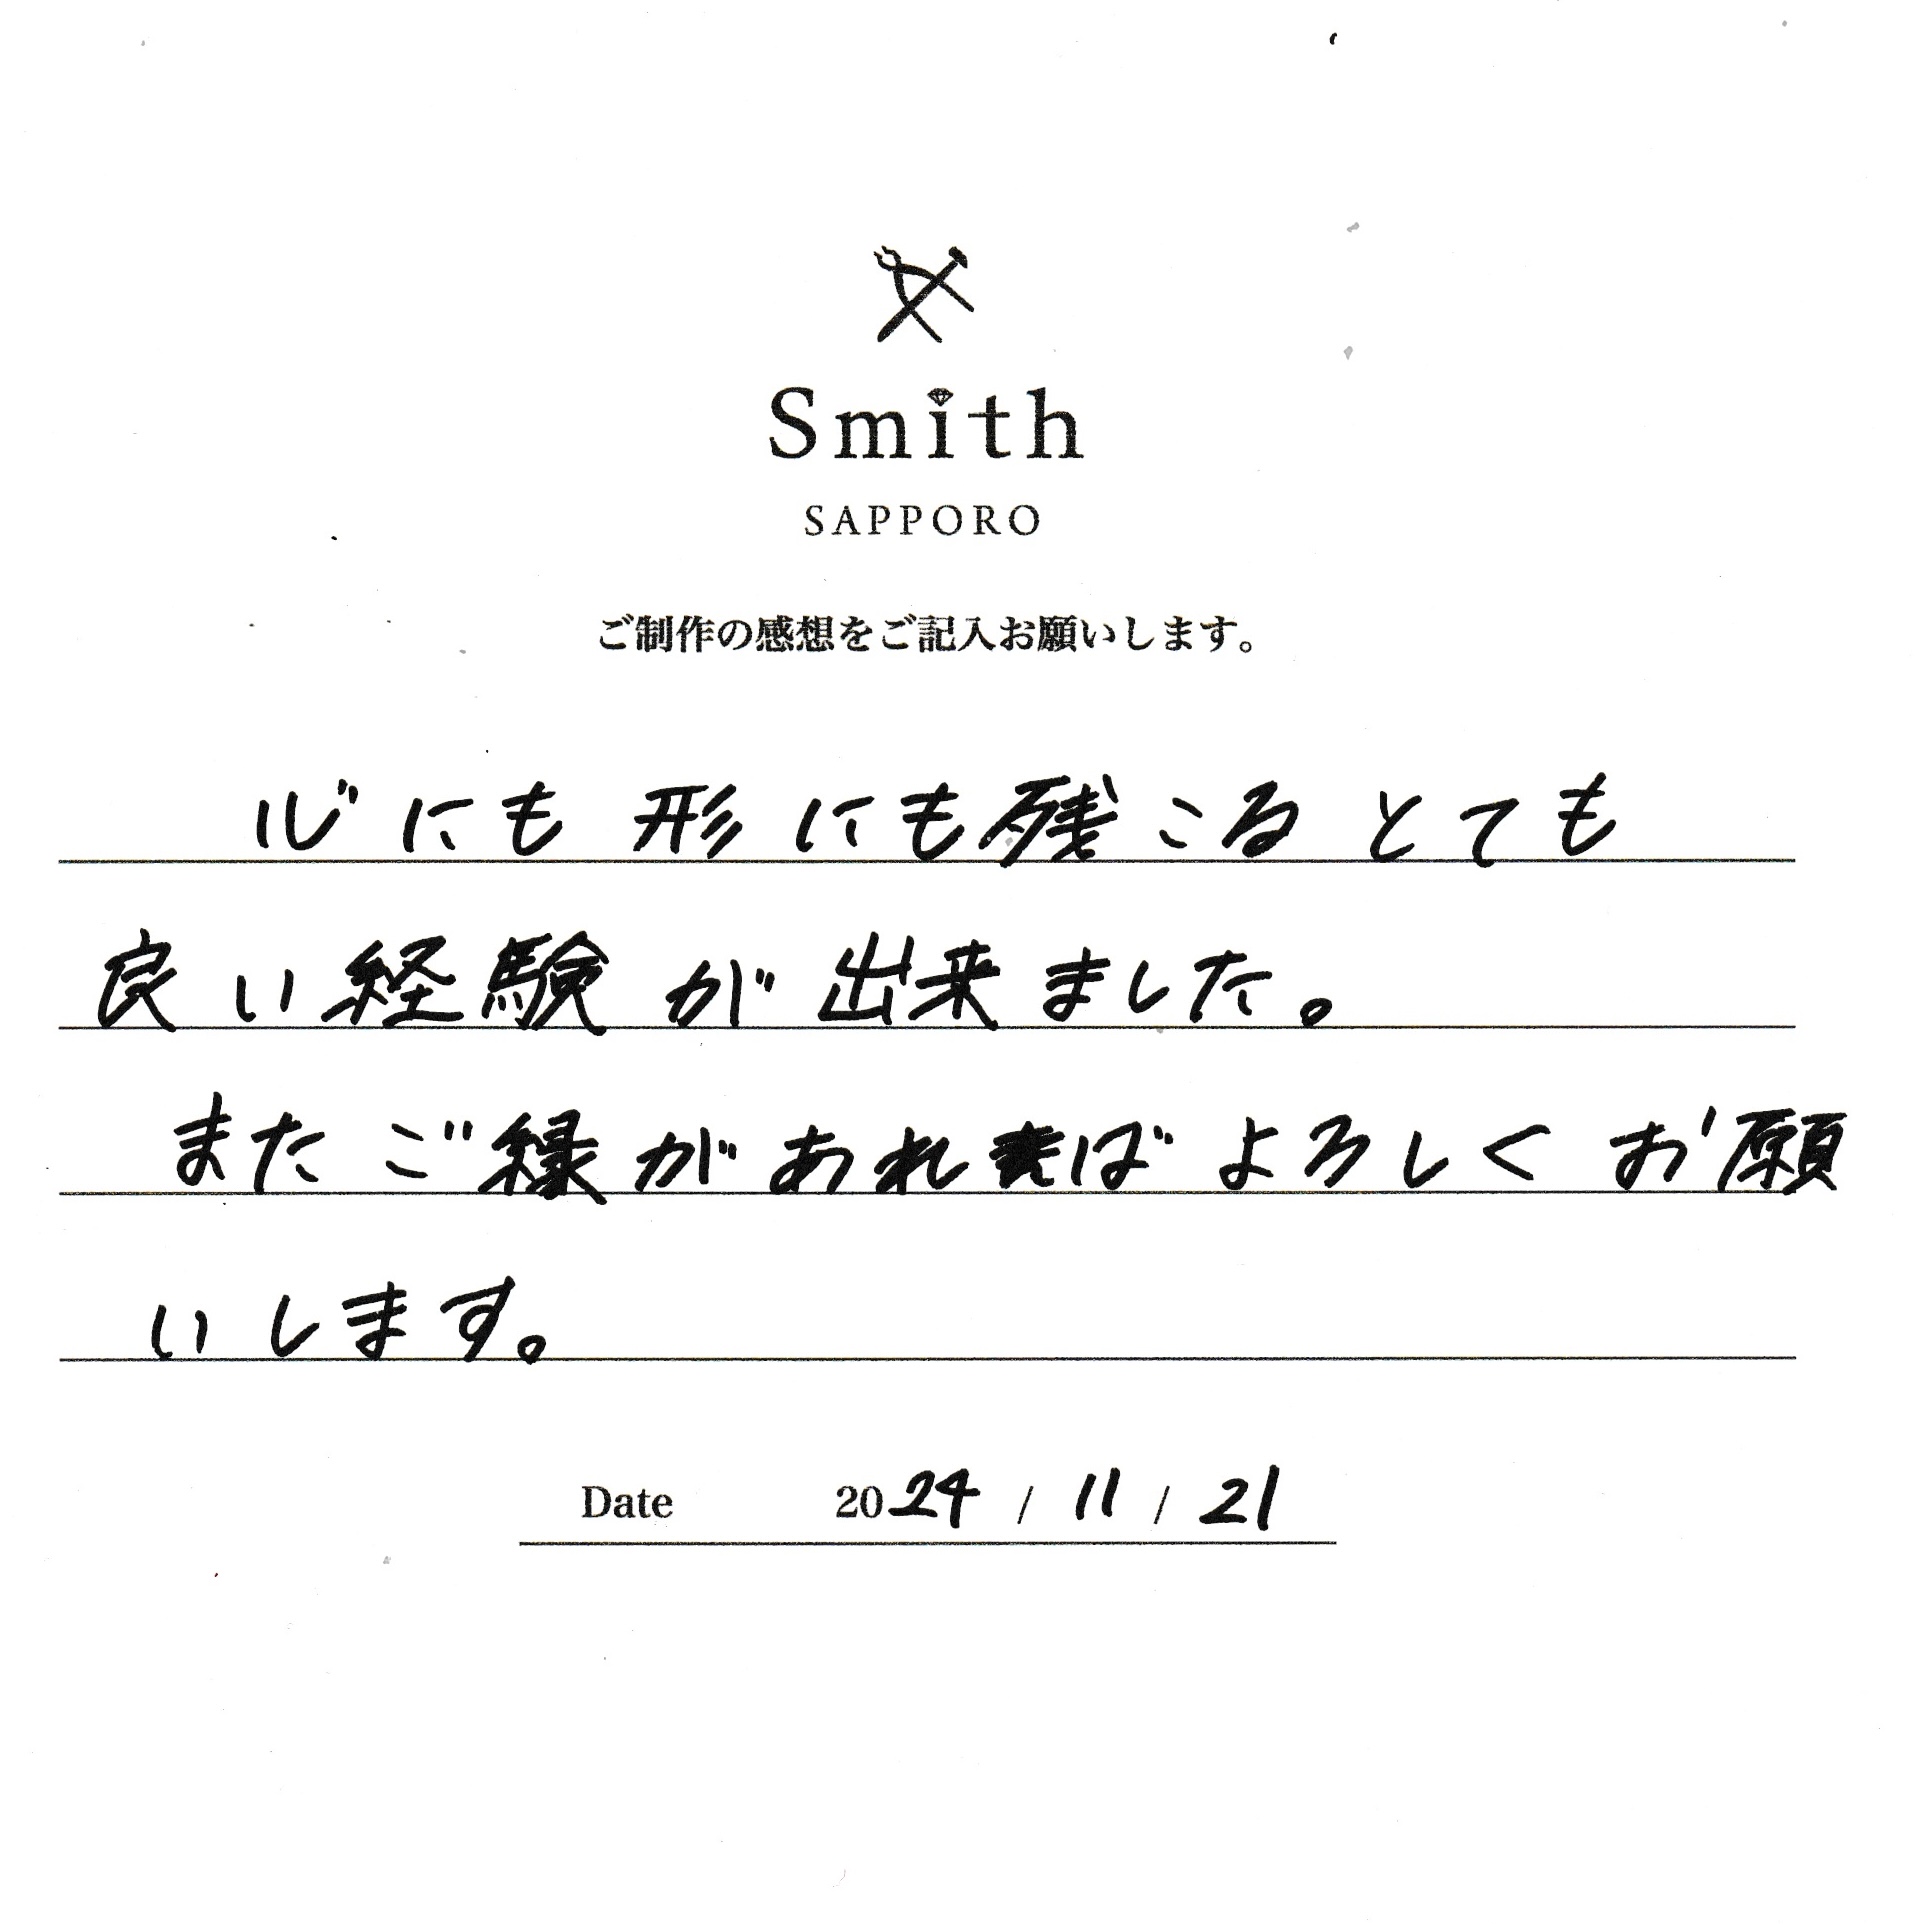 Smith
SAPPORO
ご制作の感想をご記入お願いします。
心にも形にも残こるとても
良い経験が出来ました。
またご縁があればよろしくお願
いします。
Date 2024 / 11 / 21